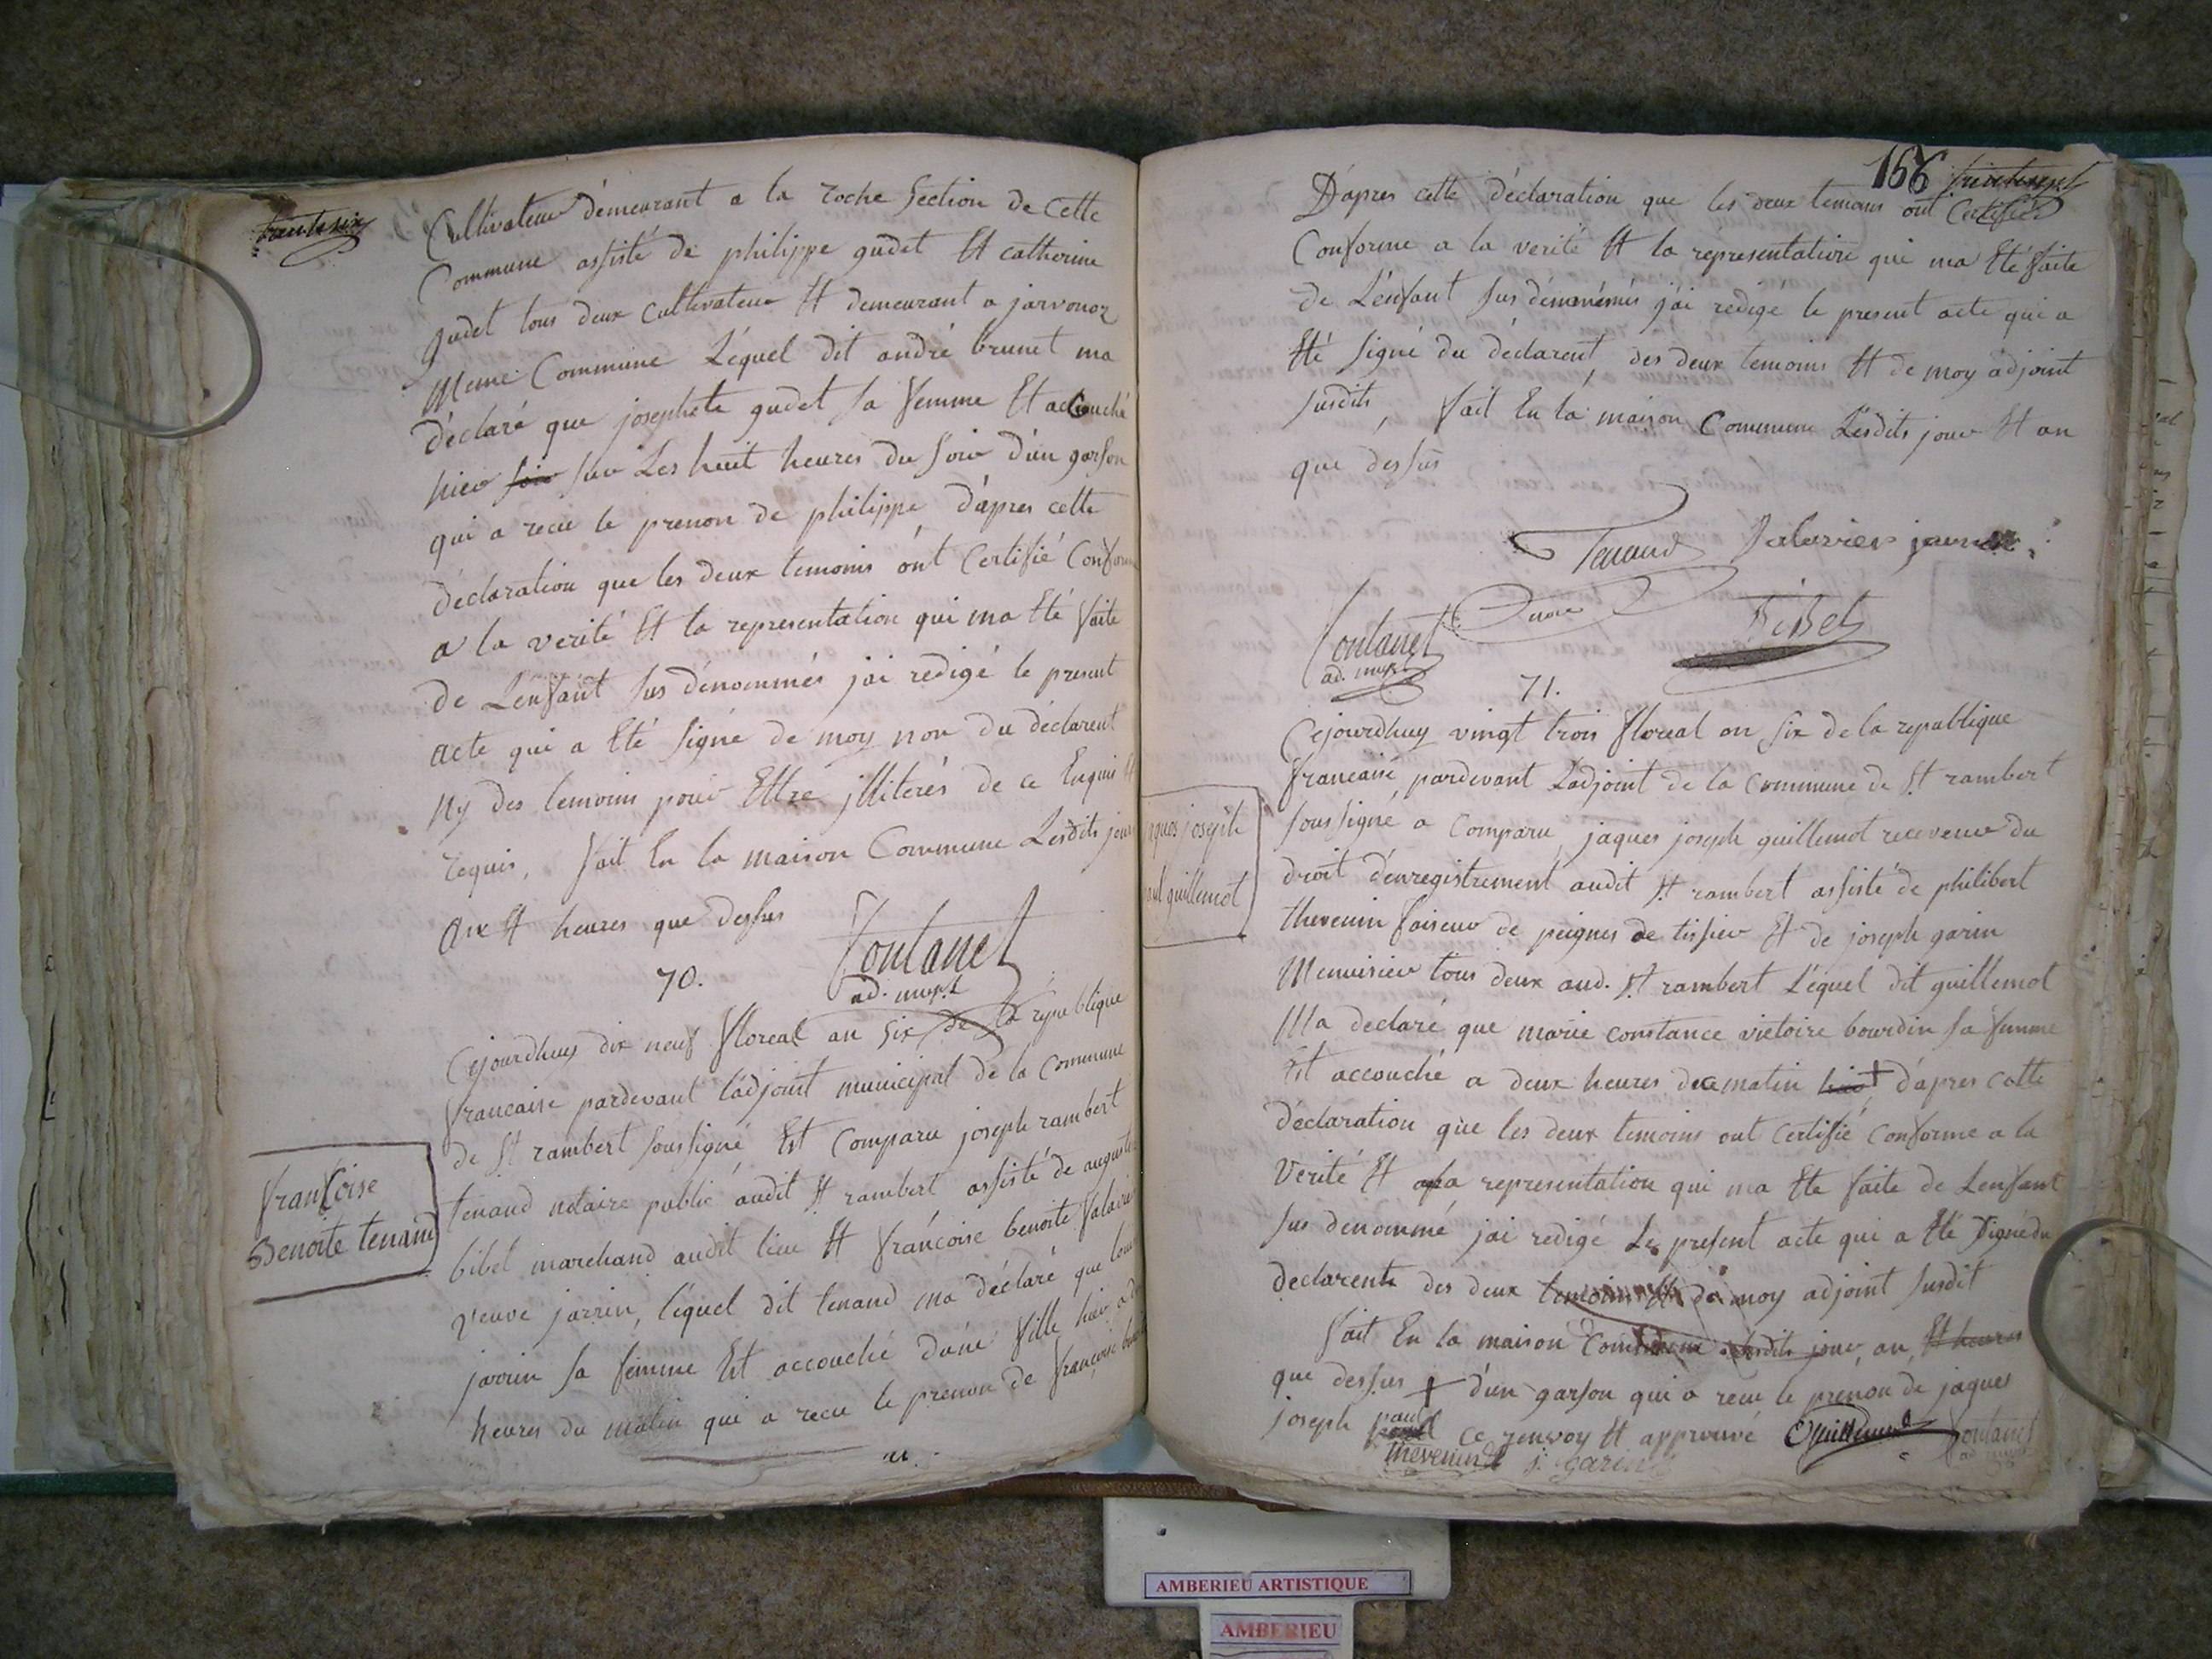 trente six
Cultivateur demeurant a la roche Section de Cette
Commune assisté de philippe gudet Et catherine
gudet tous deux cultivateur Et demeurant a javornoz
Meme Commune Léquel dit andré brunet ma
déclaré que josephete gudet sa femme Et accouché
hier soir sur Les huit heures du soir d'un garson
qui a recu le prenon de philippe d'apres cette
déclaration que les deux temoins ónt Certifié Conforme
a la verité Et la representation qui ma Eté faite
de L'enfant sus dénommés jai redigé le present
acte qui a Eté signé de moy non du déclarent
Ny des temoins pour Ettre jlliterés de ce Enquis Et
requis, fait En la maison Commune Lesdits jour
An Et heures que dessus
Fontanet
ad. mupl
70.
Cejourdhuy dix neuf floreal an six de la republique
francaise pardevant l'adjoint municipal de la Commune
de St rambert soussigné Est Comparu joseph rambert
tenand notaire public audit St rambert assisté de augustin
bibet marchand audit lieu Et francoise benoite Valavier
veuve jarrin, léquel dit tenand ma déclaré que
jarrin sa femme Est accouché dune fille hier a
heures du matin qui a recu le prenon de françoise
francoise
Benoite tenand
156 trente sept
D'apres cette déclaration que les deux temoins ont Certifiés
Conforme a la verité Et la representation qui ma Eté faite
de L'enfant sus dénommés j'ai redigé le present acte qui a
Eté signé du déclarent, des deux temoins Et de moy adjoint
susdits, fait En la maison Commune Lesdits jour Et an
que dessus
Tenand Valavier jarrin
Fontanet BiBet
ad. mupl
71.
Cejourdhuy vingt trois floreal an six de la republique
francaise, pardevant L'adjoint de la Commune de St rambert
soussigné a Comparu jaques joseph guillemot receveur du
droit d'enregistrement audit St rambert assisté de philibert
thevenin faiseur de peignes de tissier Et de joseph garin
Menuisier tous deux aud. St rambert Léquel dit guillemot
Ma declaré que marie constance victoire bourdin sa femme
Est accouché a deux heures de ce matin hier + d'apres cette
déclaration que les deux temoins ont Certifié Conforme a la
Verité Et a la representation qui ma Ete faite de Lenfant
sus denommé jai redigé Le present acte qui a Eté signé du
declarent des deux temoins Et de moy adjoint susdit
fait En la maison Commune Lesdits jour, an, Et heures
que dessus + d'un garson qui a recu le prenon de jaques
joseph paul ce renvoy Et approuvé Guillemot Fontanet
Thevenin j. Garin
jaques joseph
paul guillemot
AMBERIEU ARTISTIQUE
AMBERIEU